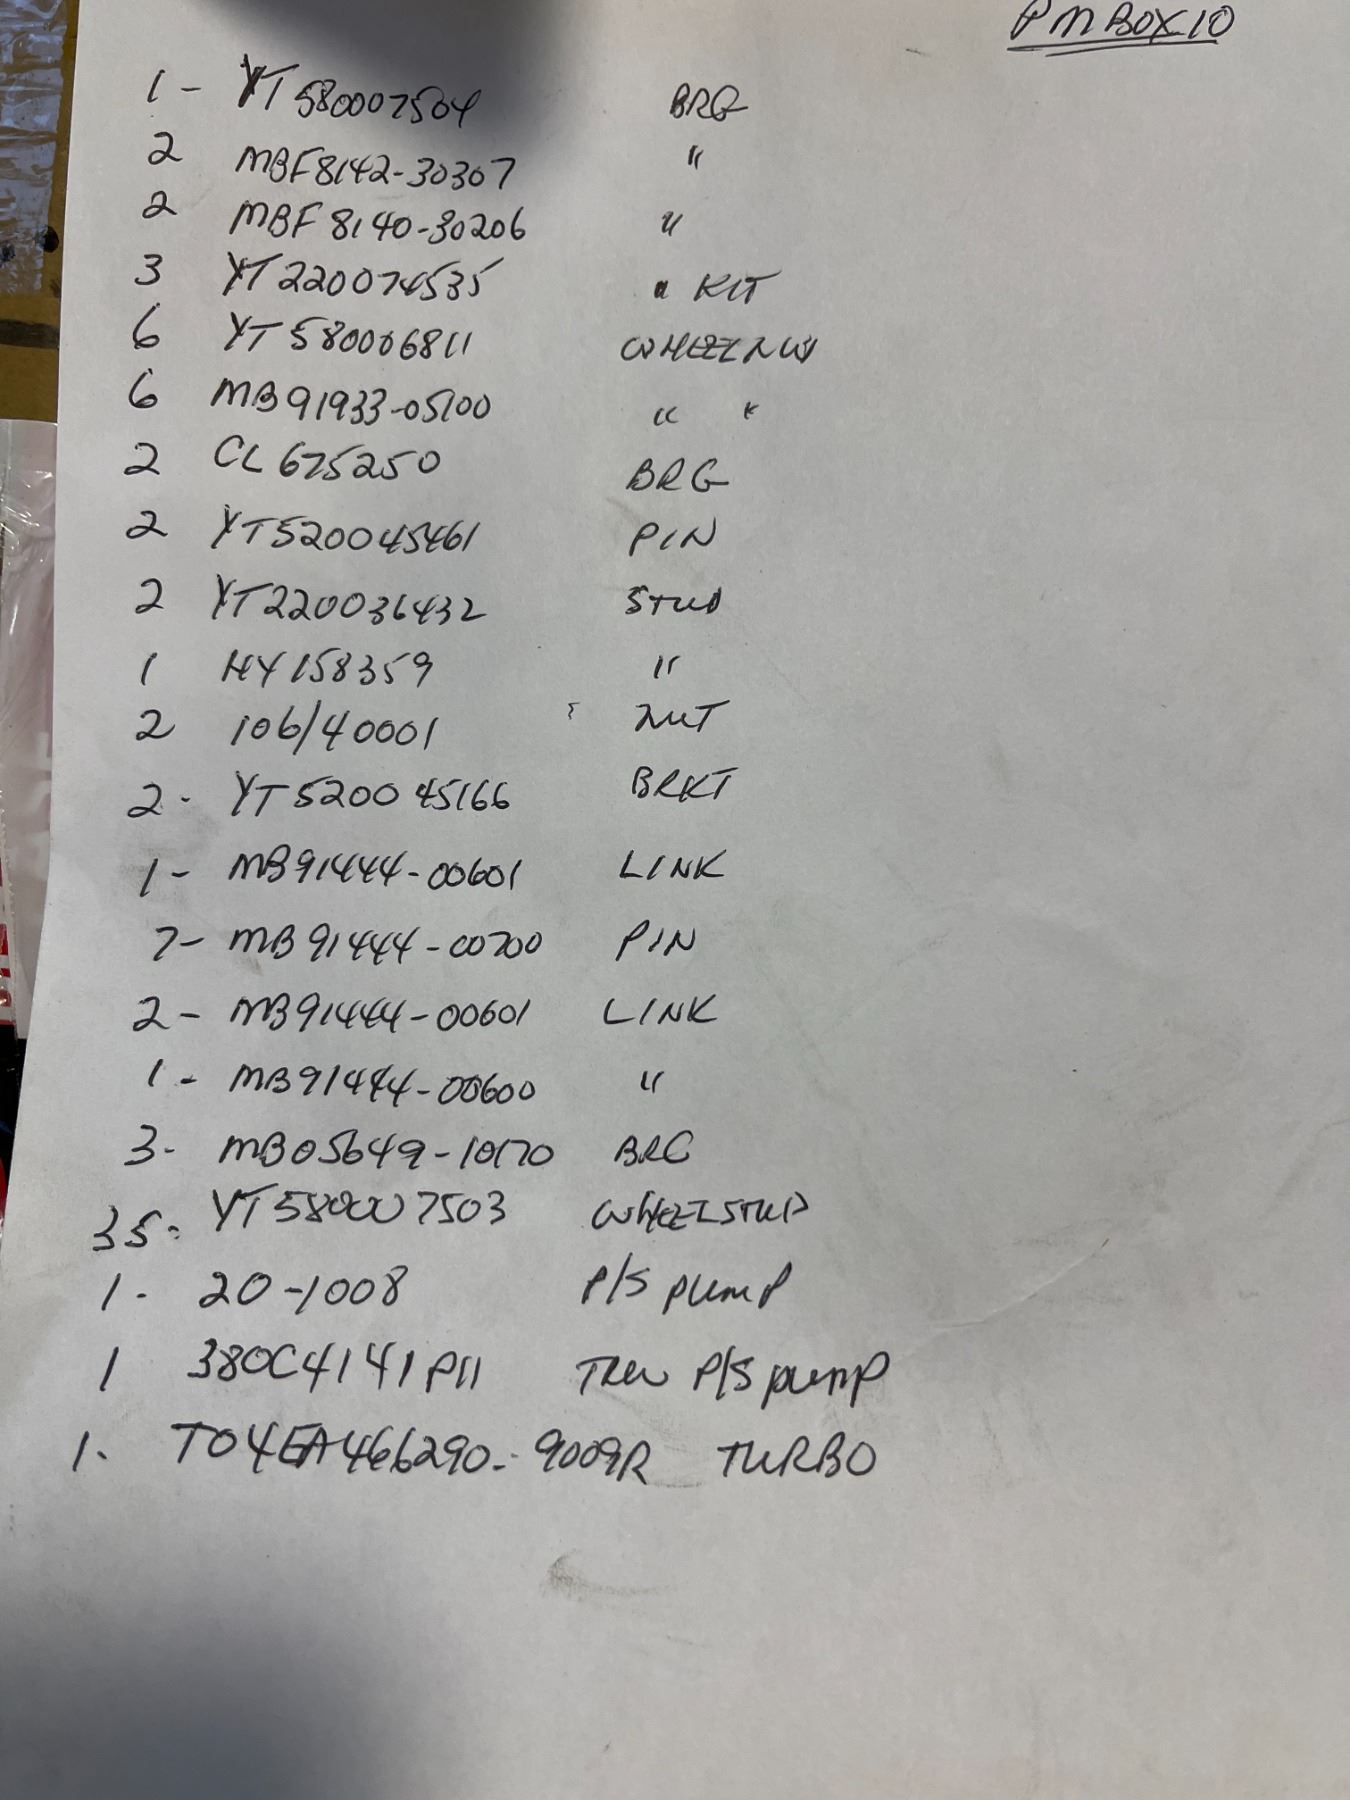 PM BOX 10
1 - YT580007504 BRG
2 MBF8142-30307 "
2 MBF8140-30206 "
3 YT220074535 " KIT
6 YT580006811 WHEEL NUT
6 MB91933-05100 " "
2 CL675250 BRG
2 YT520045461 PIN
2 YT220036432 STUD
1 HY158359 "
2 106/40001 NUT
2 - YT520045166 BRKT
1 - MB91444-00601 LINK
7 - MB91444-00700 PIN
2 - MB91444-00601 LINK
1 - MB91444-00600 "
3 - MB05649-10170 BRG
35 - YT580007503 WHEEL STUD
1 - 20-1008 P/S PUMP
1 380C4141P11 TRW P/S PUMP
1 - T04EA466290-9009R TURBO